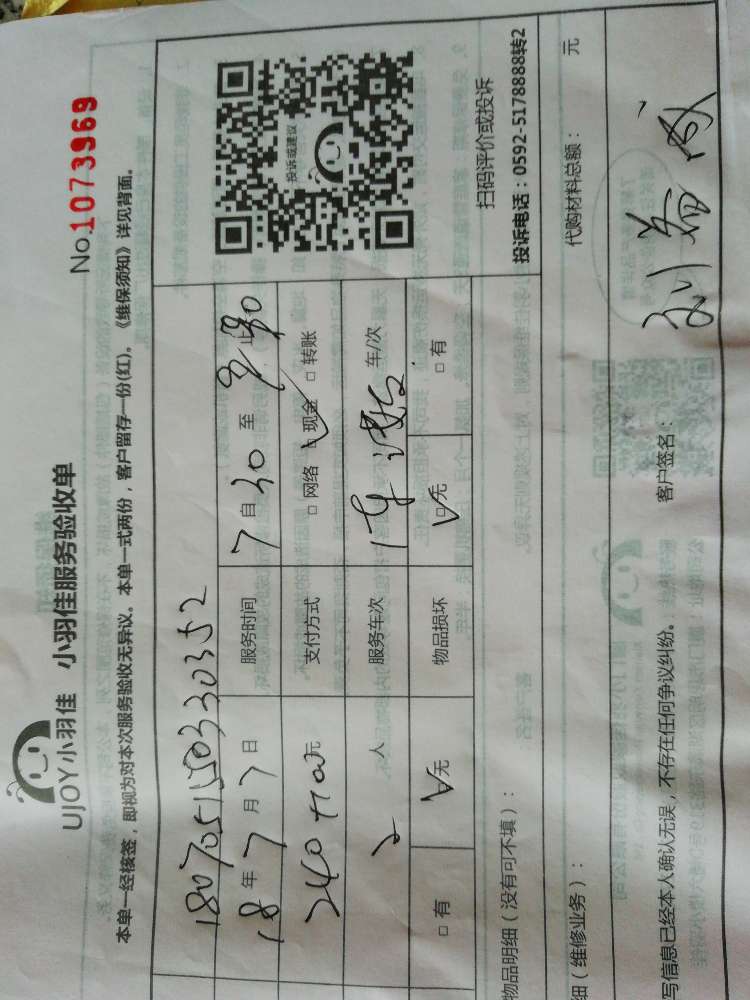 UJOY小羽佳 小羽佳服务验收单 No.1073969
本单一经核签，即视为对本次服务验收无异议。本单一式两份，客户留存一份(红)。《维保须知》详见背面。
180705150330352
18年7月7日 服务时间 7自30至 止
240 元 支付方式 □网络 □现金 □转账
2人 服务车次 车/次
□有 □无 物品损坏 □无 □有
投诉或建议
扫码评价或投诉
投诉电话：0592-5178888转2
物品明细（没有可不填）：
细（维修业务）： 代购材料总额： 元
写信息已经本人确认无误，不存在任何争议纠纷。 客户签名：